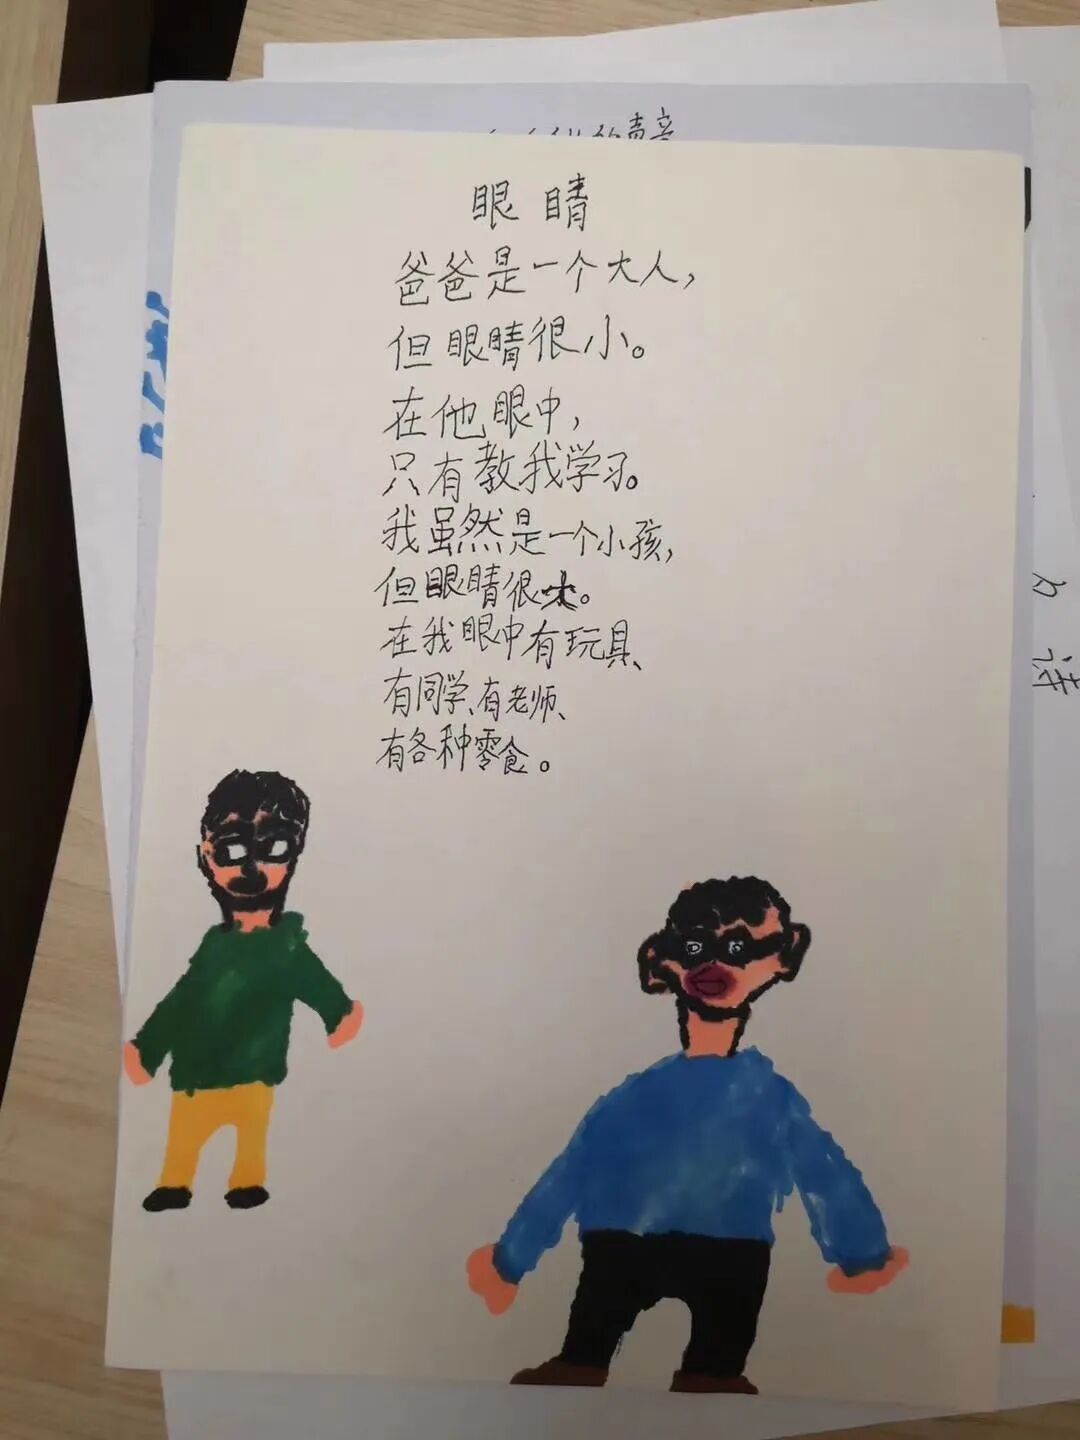 的声音
眼睛
爸爸是一个大人，
但眼睛很小。
在他眼中，
只有教我学习。
我虽然是一个小孩，
但眼睛很大。
在我眼中有玩具、
有同学、有老师、
有各种零食。
诗